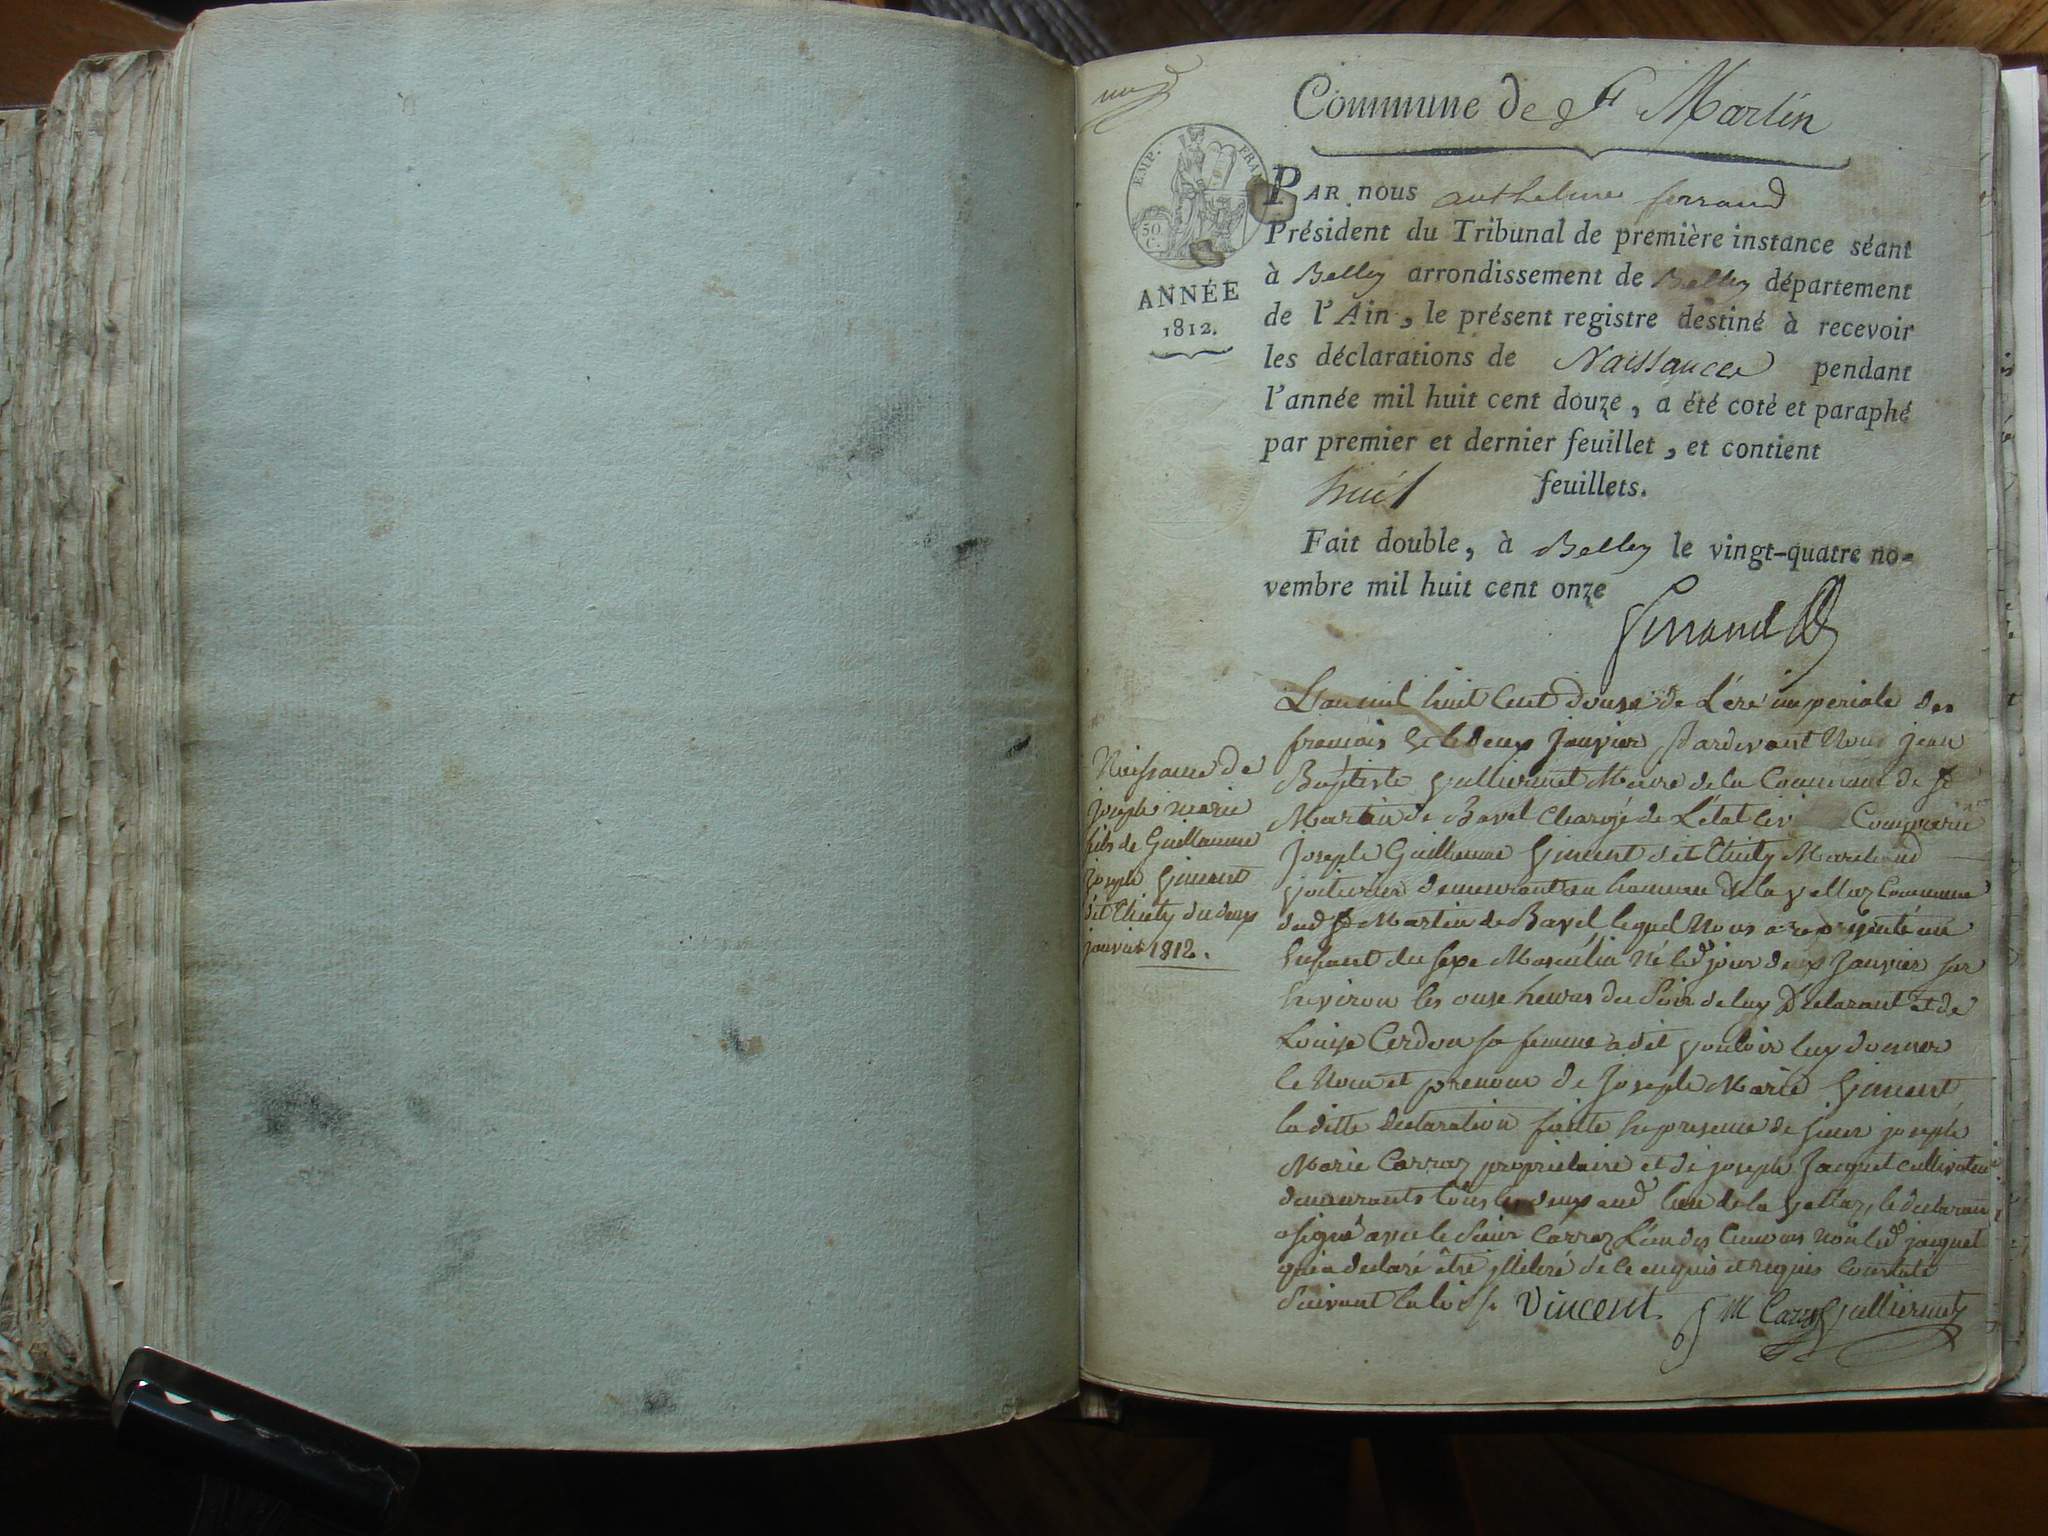 Commune de St Martin
EMP: FRAN
50
C.
ANNÉE
1812.
PAR nous anthelme ferrand
Président du Tribunal de première instance séant
à Belley arrondissement de Belley département
de l'Ain, le présent registre destiné à recevoir
les déclarations de Naissances pendant
l'année mil huit cent douze, a été coté et paraphé
par premier et dernier feuillet, et contient
huit feuillets.
Fait double, à Belley le vingt-quatre no-
vembre mil huit cent onze
Ferrand
Naissance de
joseph marie
fils de Guillaume
joseph
dit Thiety du deux
janvier 1812.
L'an mil huit Cent douse de L'ére imperiale des
français & le deux Janvier Pardevant Nous jean
Baptiste Vulliermet Maire de la Commune de St
Martin de Bavel Chargé de L'état Civ
Joseph Guillaume Vincent dit Thiety Marchand
Voiturier demeurant au hameau de la Vellaz Commune
dud St Martin de Bavel lequel Nous a représenté un
Enfant du sexe Masculin Né led jour deux Janvier sur
Environ les onse heures du Soir de luy Déclarant et de
Louise Cerdon sa femme a dit vouloir luy donner
le Nom et prenom de Joseph Marie Vincent
la ditte declaration faitte En presence de sieur joseph
Marie Carraz proprietaire et de joseph Jacquet cultivateur
demeurants tous les deux aud lieu de la Vellaz, le declarant
a signé avec le Sieur Carraz L'un des témoins non led jacquet
qui a declaré être illiteré de ce enquis et requis Constaté
Suivant la loi Vincent J M Carraz Vulliermet